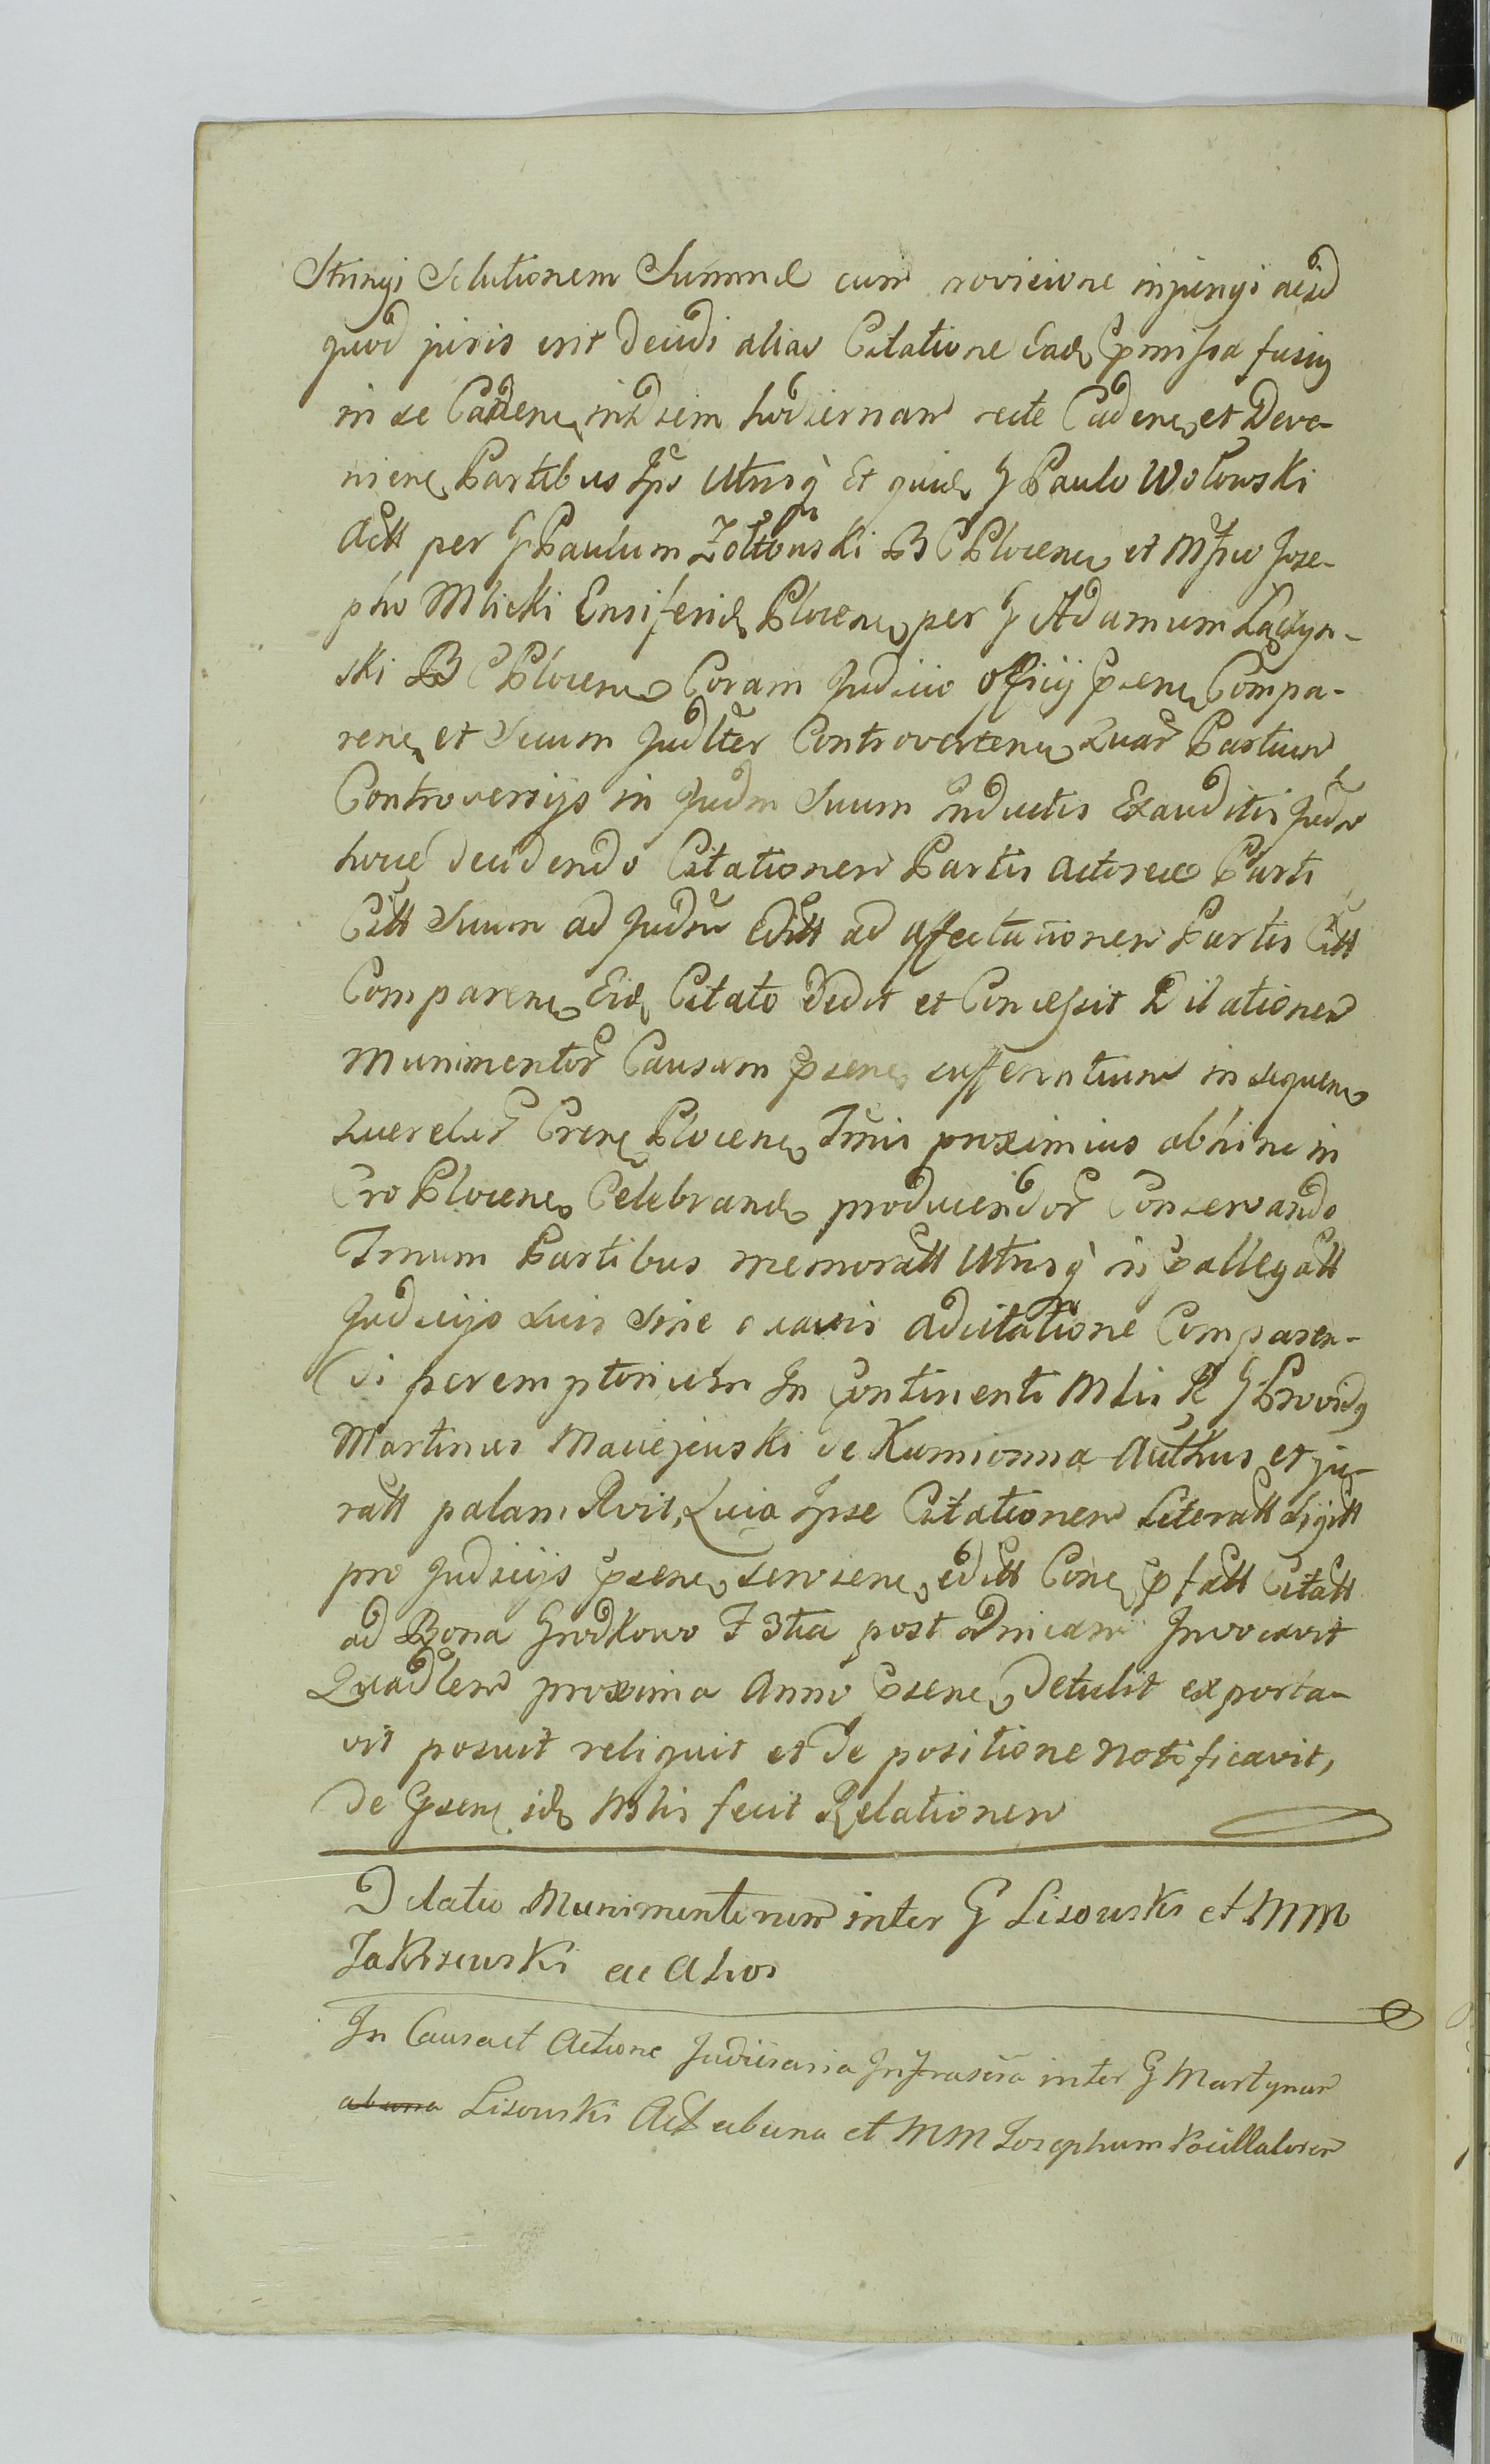 Stringi Solutionem Summae cum provisione injungi aeid
quod juris erit decidi alias Citatione Eadem pmissa fusiq
in se Cadene in Diem hodiernam recte Cadene et Deve-
niene Partibus Ips Utrisq Et quid G Paulo Wołowski
Actt per G Paulum Żółtowski B C Plocene et Mfco Jose-
pho Mlicki Ensiferid Plocene per G Adamum
ski B C Plocene Coram Judicio Officij psene Compa-
rene et Secum Judlter Controvertene Quar Partium
Controversijs in Judm Suum Inductis Exauditis Judm
hocce decidendo Citationem Partis Actoreae Parti
Citt Suum ad Judm Editt ad affectationem Partis Citt
Comparene Eid Citato Dedit et Concessit Dilationem
Munimentor Causam psene in sequen
Querelar Crene Plocene Tmis proximius abhinc in
Cro Plocene Celebrand producendor Conservando
Tmum Partibus memoratt Utrisq in pallegatt
Judicijs Suis Sine adcitatione Comparen-
di peremptorium In Continenti Mlis R G Provid
Martinus Maciejewski de Kumionna Autthus et ju-
ratt palam Rvit, Quia Ipse Citationem Literatt Sigitt
pro Judicijs psene servsene editt Cone pfatt Citatt
ad Bona Grodkowo F 3tia post Dnicam Invocavit
Quadlem proxima Anno psene Detulit exporta-
vit posuit reliquit et de positione notificavit,
de psene id Mlis fecit Relationem
Dilatio Munimentorum inter G Lisowski et MM
Zakrzewski ac Alios
In Causa et Actione Judiciaria Infrascra inter G Martynum
ab una Lisowski Act ab una et MM Josephum Pocillatorem